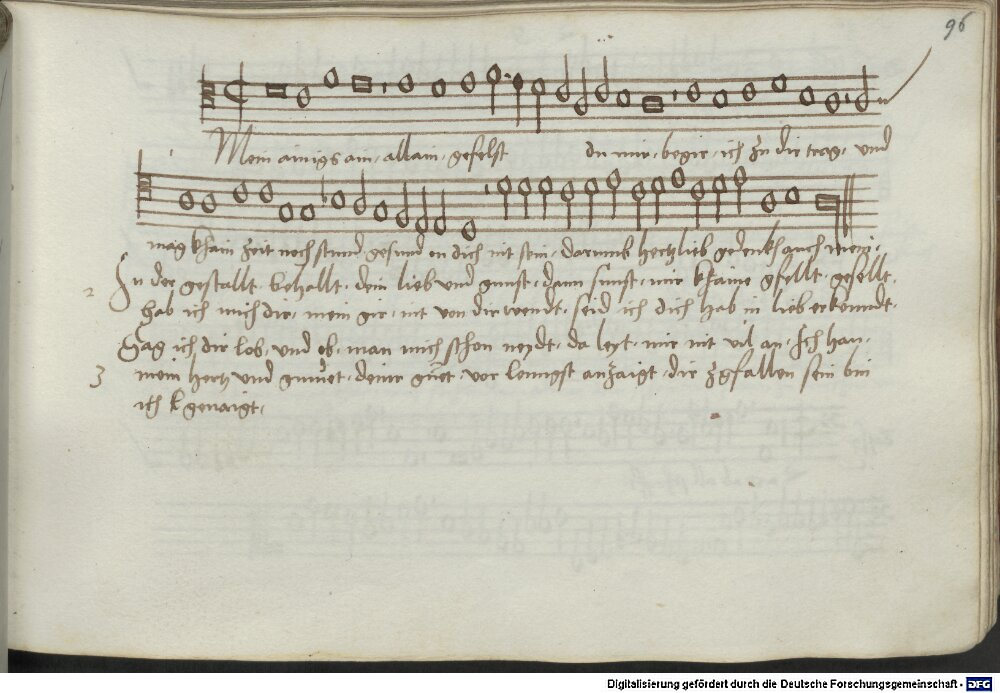 96
Mein ainigs ain, allain, gefelst du mir, begir, ich zu dir trag, und
mag khain zeit noch stund gesund on dich nit sein, darumb hertzlieb gedenkh auch mein,
2 In der gestallt, behallt, dein lieb und gunst, dann sunst, mir khaine gfellt, gesellt,
hab ich mich dir, mein gir, nit von dir wendt, seid ich dich hab in lieb erkenndt,
Sag ich dir lob, und ob, man mich schon neydt, da leyt, mir nit vil an, Ich han,
3 mein hertz und gmuet, deine guet, vor lenngst anzaigt, dir zgfallen sein bin
ich genaigt,
Digitalisierung gefördert durch die Deutsche Forschungsgemeinschaft - DFG